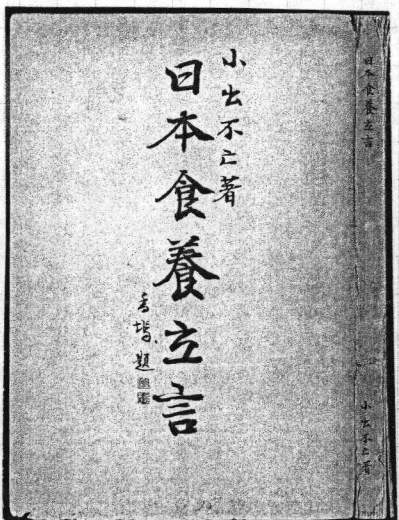 小出不亡著
日本食養立言
香 題
日本食養立言
小出不亡著